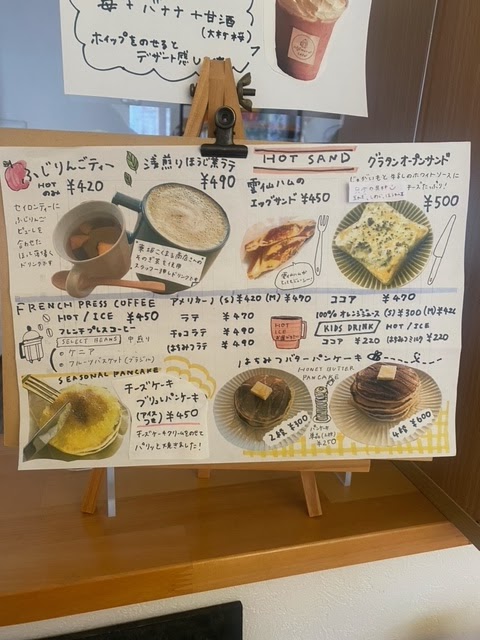 苺 + バナナ + 甘酒
(大村桜)
ホイップをのせると
デザート感
ふじりんごティー
HOT
のみ
¥420
セイロンティーに
ふじりんご
ピューレを
合わせた
ドリンクです
浅煎りほうじ茶ラテ
¥490
HOT SAND
雲仙ハムの
エッグサンド ¥450
グラタンオープンサンド
じゃがいもと牛すじのホワイトソースに
チーズたっぷり!
¥500
FRENCH PRESS COFFEE
HOT / ICE ¥450
フレンチプレスコーヒー
SELECT BEANS 中煎り
ケニア
フルーツバスケット(ブラジル)
アメリカーノ (S)¥420 (M)¥490
ラテ ¥470
チョコラテ ¥490
はちみつラテ ¥490
HOT
ICE
ココア ¥470
100%オレンジジュース (S)¥300 (M)¥420
KIDS DRINK HOT / ICE
ココア ¥220 はちみつミルク ¥220
SEASONAL PANCAKE
チーズケーキ
ブリュレパンケーキ
(アイスつき) ¥450
チーズケーキクリームをのせて
パリッと焼きました!
はちみつバターパンケーキ
HONEY BUTTER
PANCAKE
2段 ¥400
パンケーキ
¥250
4段 ¥600